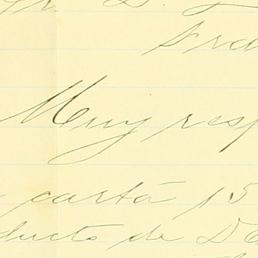 Fra
Muy resp
carta 15
ducto de D